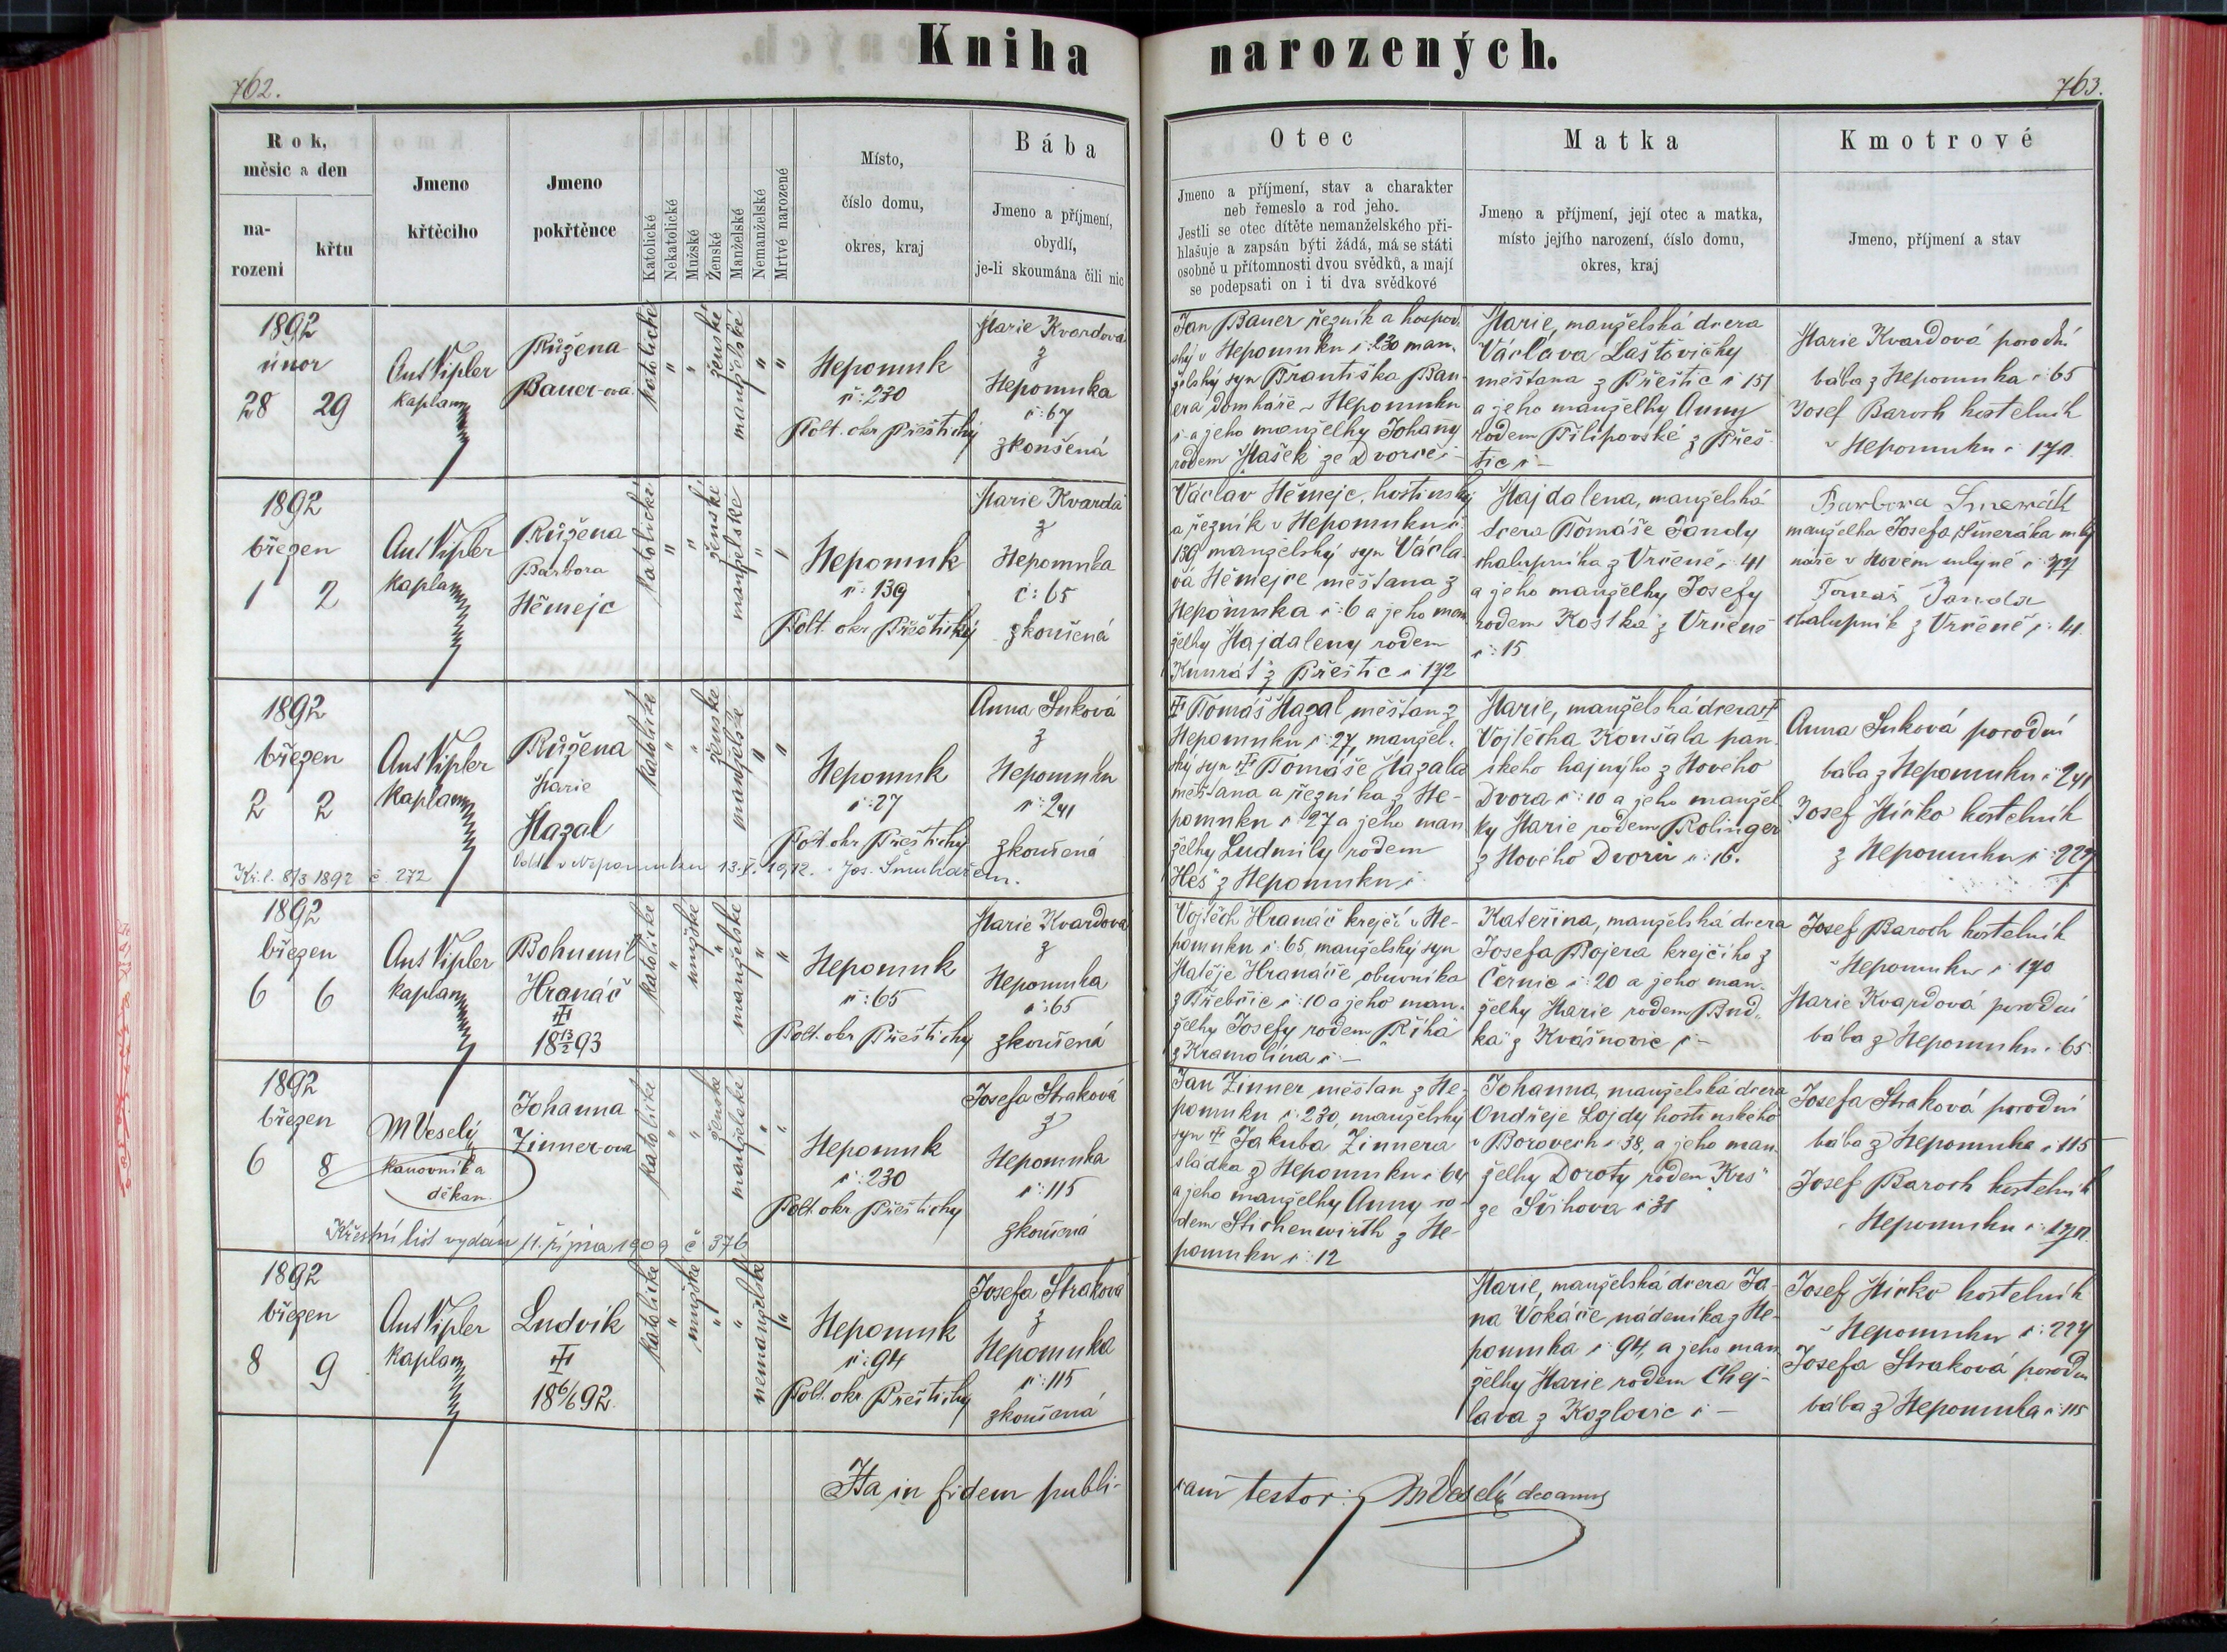 Kniha narozených.
762.
763.
Rok,
měsíc a den
na-
rození
křtu
Jmeno
křtěcího
Jmeno
pokřtěnce
Katolické
Nekatolické
Mužské
Ženské
Manželské
Nemanželské
Mrtvé narozené
Místo,
číslo domu,
okres, kraj
Bába
Jmeno a příjmení,
obydlí,
je-li skoumána čili nic
Otec
Jmeno a příjmení, stav a charakter
neb řemeslo a rod jeho.
Jestli se otec dítěte nemanželského při-
hlašuje a zapsán býti žádá, má se státi
osobně u přítomnosti dvou svědků, a mají
se podepsati on i ti dva svědkové
Matka
Jmeno a příjmení, její otec a matka,
místo jejího narození, číslo domu,
okres, kraj
Kmotrové
Jmeno, příjmení a stav
1892
únor
28 29
Ant Vipler
kaplan
Růžena
Bauer-ova
katolické
"
"
ženské
manželské
"
"
Nepomuk
č: 230
Polt. okr Přeštický
Marie Kvardová
z
Nepomuka
č: 67
zkoušená
Jan Bauer řezník a hospod.
ský v Nepomuku č: 230 man-
želský syn Františka Bau-
era domkáře v Nepomuku
č - a jeho manželky Johany
rodem Mašek ze Dvorce č -
Marie, manželská dcera
Václava Laštovičky
měšťana z Přeštic č 151
a jeho manželky Anny
rodem Filipovské z Přeš-
tic č -
Marie Kvardová porodní
bába z Nepomuka č 65
Josef Baroch kostelník
v Nepomuku č 170.
1892
březen
1 2
Ant Vipler
kaplan
Růžena
Barbora
Němejc
katolické
"
"
ženské
manželské
"
"
Nepomuk
č: 139
Polt. okr Přeštický
Marie Kvarda
z
Nepomuka
č: 65
zkoušená
Václav Němejc, hostinský
a řezník v Nepomuku č.
139 manželský syn Václa-
va Němejce měšťana z
Nepomuka č: 6 a jeho man
želky Majdaleny rodem
Kunrát z Přeštic č 172
Majdalena, manželská
dcera Tomáše Jandy
chalupníka z Vrčeně č 41
a jeho manželky Josefy
rodem Kostka z Vrčeně
č: 15
Barbora Smerák
manželka Josefa Šmeráka mly
náře v Novém mlýně č 77
Tomáš Janda
chalupník z Vrčeně č: 41.
1892
březen
2 2
Ant Vipler
kaplan
Růžena
Marie
Mazal
katolické
"
"
ženské
manželské
"
"
Nepomuk
č: 27
Polt. okr Přeštický
Anna Suková
z
Nepomuku
č: 241
zkoušená
Kř. l. 8/3 1892 č. 272
v Nepomuku 13. V. 1912.
Tomáš Mazal, měšťan z
Nepomuku č: 27, manžel-
ský syn Tomáše Mazala
měšťana a řezníka z Ne-
pomuku č 27 a jeho man
želky Ludmily rodem
Hes z Nepomuku č
Marie, manželská dcera
Vojtěcha Koušala pan-
ského hajného z Nového
Dvora č: 10 a jeho manžel
ky Marie rodem Rolinger
z Nového Dvora č: 16.
Anna Suková porodní
bába z Nepomuku č 241
Josef Mirko kostelník
z Nepomuku č: 227
1892
březen
6 6
Ant Vipler
kaplan
Bohumil
Hranáč
18 13/2 93
katolické
"
mužské
"
manželské
"
"
Nepomuk
č: 65
Polt. okr Přeštický
Marie Kvardova
z
Nepomuka
č: 65
zkoušená
Vojtěch Hranáč krejčí v Ne-
pomuku č: 65, manželský syn
Matěje Hranáče, obuvníka
z Třebčic č: 10 a jeho man-
želky Josefy rodem Říha
z Kramolína č -
Kateřina, manželská dcera
Josefa Bojera krejčího z
Černic č: 20 a jeho man-
želky Marie rodem Bud-
ka z Kvášnovic č -
Josef Baroch kostelník
v Nepomuku č 170
Marie Kvardová porodní
bába z Nepomuku č 65
1892
březen
6 8
M Veselý
kanovník a
děkan.
Johanna
Zinner-ova
katolické
"
"
ženské
manželské
"
"
Nepomuk
č: 230
Polt. okr Přeštický
Josefa Straková
z
Nepomuka
č: 115
zkoušená
Křestní list vydán 11. října 1909 č 376
Jan Zinner měšťan z Ne-
pomuku č: 230, manželský
syn Jakuba Zinnera
sládka z Nepomuku č 64
a jeho manželky Anny ro-
dem Stichenwirth z Ne-
pomuku č: 12
Johanna, manželská dcera
Ondřeje Lojdy hostinského
v Borovech č 38, a jeho man-
želky Doroty rodem Krs
ze Švihova č 31
Josefa Straková porodní
bába z Nepomuka č 115
Josef Baroch kostelník
v Nepomuku č: 170.
1892
březen
8 9
Ant Vipler
kaplan
Ludvík
18 6/6 92.
katolické
"
mužské
"
"
nemanželské
"
Nepomuk
č: 94
Polt. okr. Přeštický
Josefa Straková
z
Nepomuka
č: 115
zkoušená
Marie, manželská dcera Ja-
na Vokáče, nádeníka z Ne-
pomuka č 94, a jeho man
želky Marie rodem Chej-
lava z Kozlovic č -
Josef Mirko kostelník
v Nepomuku č: 227
Josefa Straková porodní
bába z Nepomuka č: 115
Ita in fidem publi-
cam testor: M Veselý decanus